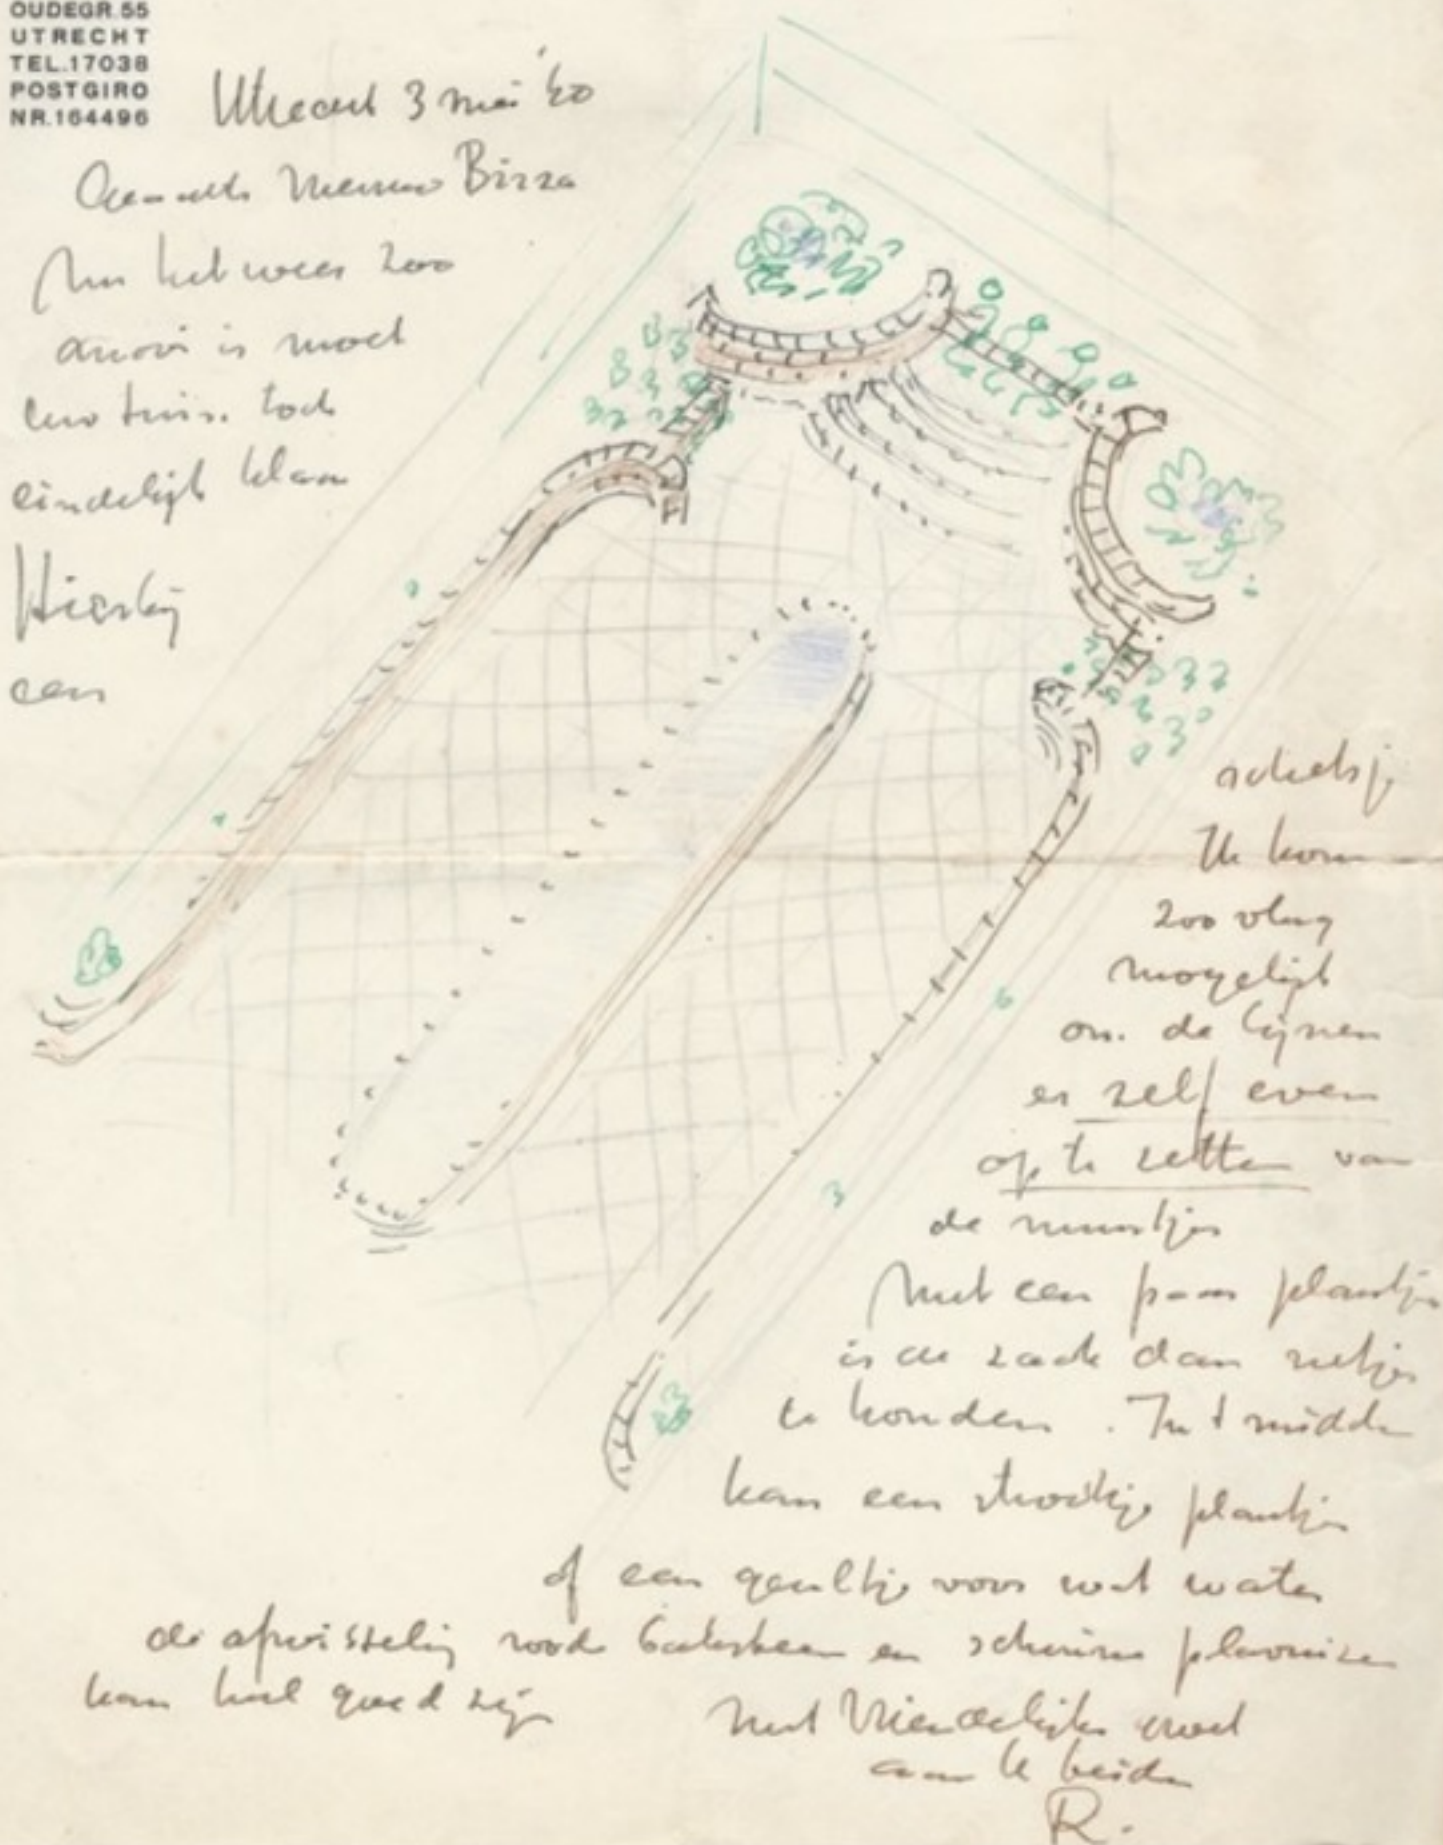 OUDEGR. 55
UTRECHT
TEL.17038
POSTGIRO
NR.164496
Utrecht 3 mei
Mevrouw Birza
Nu het weer zoo
mooi is moet
uw tuin toch
eindelijk klaar
Hierbij
een
schetsje
Ik kom
zoo vlug
mogelijk
om de lijnen
er zelf even
op te zetten van
de muurtjes
Met een paar plantjes
is de zaak dan netjes
te houden. In 't midden
kan een strookje plantjes
of een geultje voor wat water
de afwisseling roode baksteen en plavuizen
kan heel goed zijn
Met Vriendelijke groet
aan U beiden
R.